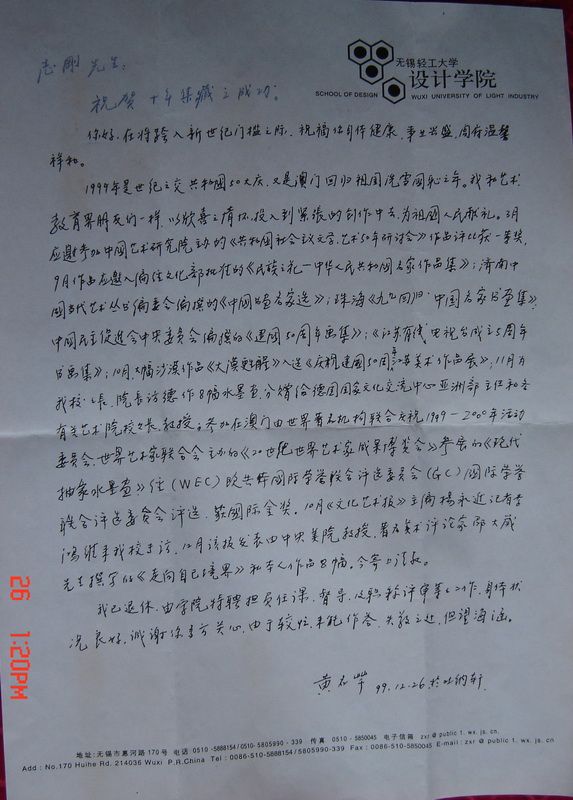 无锡轻工大学
设计学院
SCHOOL OF DESIGN WUXI UNIVERSITY OF LIGHT INDUSTRY
志刚先生:
祝贺十年集藏之成功。
你好,在将跨入新世纪门槛之际,祝福你身体健康,事业兴盛,阖府温馨
祥和。
1999年是世纪之交共和国50大庆,又是澳门回归祖国洗雪国耻之年。我和艺术
教育界朋友们一样,以欣喜之情怀,投入到紧张的创作中去,为祖国人民献礼。3月
应邀参加中国艺术研究院主办的《共和国社会议文学、艺术50年研讨会》作品评比获一等奖,
9月作品应邀入编经文化部批准的《民族之光—中华人民共和国名家作品集》;济南中
国当代艺术丛书编委会编撰的《中国书画名家选》;珠海《九九回归·中国名家书画集》,
中国民主促进会中央委员会编撰的《建国50周年画集》;《江苏有线电视台成立5周年
书画集》;10月大幅沙漠作品《大漠》入选《庆祝建国50周年江苏美术作品展》;11月为
我校校长、院长访德作8幅水墨画,分赠给德国国家文化交流中心亚洲部主任和各
有关艺术院校校长、教授;参加在澳门由世界著名机构联合庆祝1999—2000年活动
委员会、世界艺术家联合会主办的《20世纪世界艺术家成果博览会》参展的《现代
抽象水墨画》经(WEC)欧共体国际荣誉联合评选委员会(GC)国际荣誉
联合评选委员会评选,获国际金奖。10月《文化艺术报》主简杨永近记者李
鸿雁来我校走访,12月该报发表由中央美院教授、著名美术评论家邵大箴
先生撰写的《走向自己境界》和本人作品8幅。今寄上请教。
我已退休,由学院特聘担负任课、督导、及职称评审等工作,身体状
况良好,诚谢你多方关心,由于较忙,未能作答,失敬之处,但望海涵。
黄 99.12.26於吐纳轩
地址:无锡市惠河路170号 电话 0510-5888154/0510-5805990-339 传真 0510-5850045 电子信箱 zxr@public1.wx.js.cn
Add: No.170 Huihe Rd. 214036 Wuxi P.R.China Tel: 0086-510-5888154/5805990-339 Fax: 0086-510-5850045 E-mail: zxr@public1.wx.js.cn
26 1:20PM